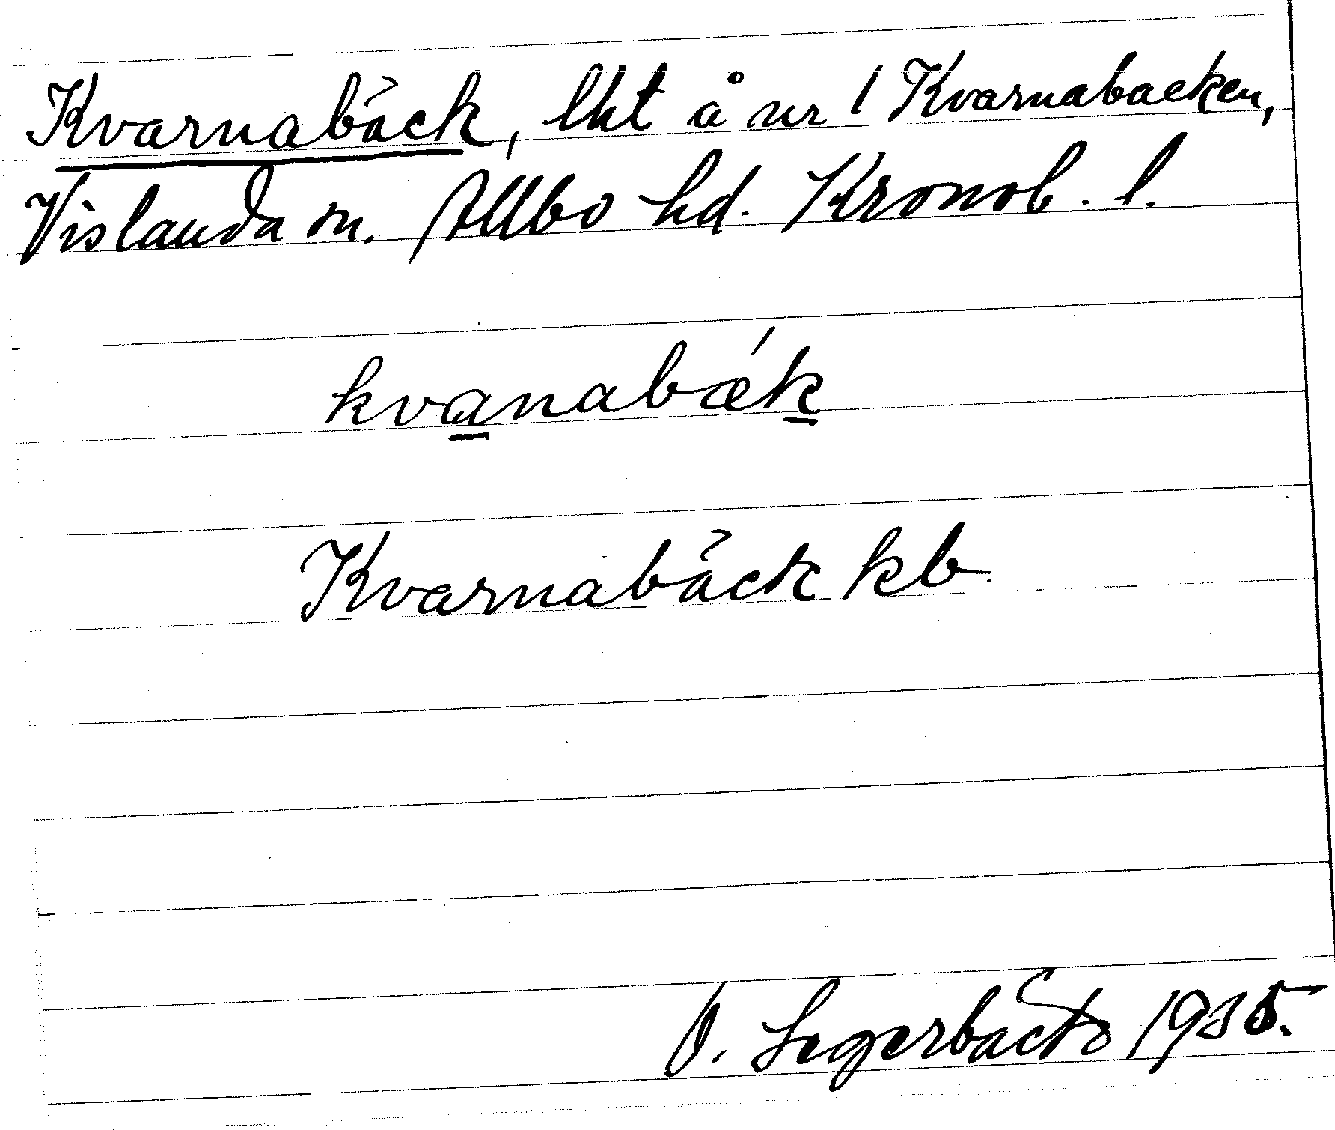 Kvarnabäck, lht å nr 1 Kvarnabacken,
Vislanda sn. Allbo hd. Kronob. l.
kvanabǽk
Kvarnabäck kb
O. Segerbäck 1935.